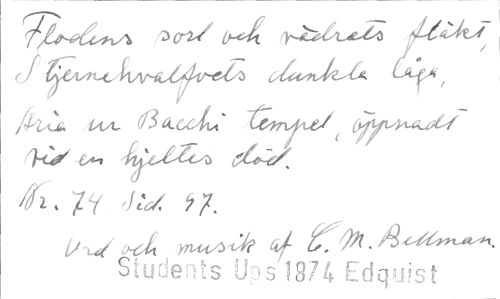 Flodens sorl och vädrets fläkt,
Stjernehvalfvets dunkla låga,
Aria ur Bacchi tempel, öppnadt
vid en hjeltes död.
Nr. 74. Sid. 97.
Ord och musik af C. M. Bellman.
Students Ups 1874 Edquist